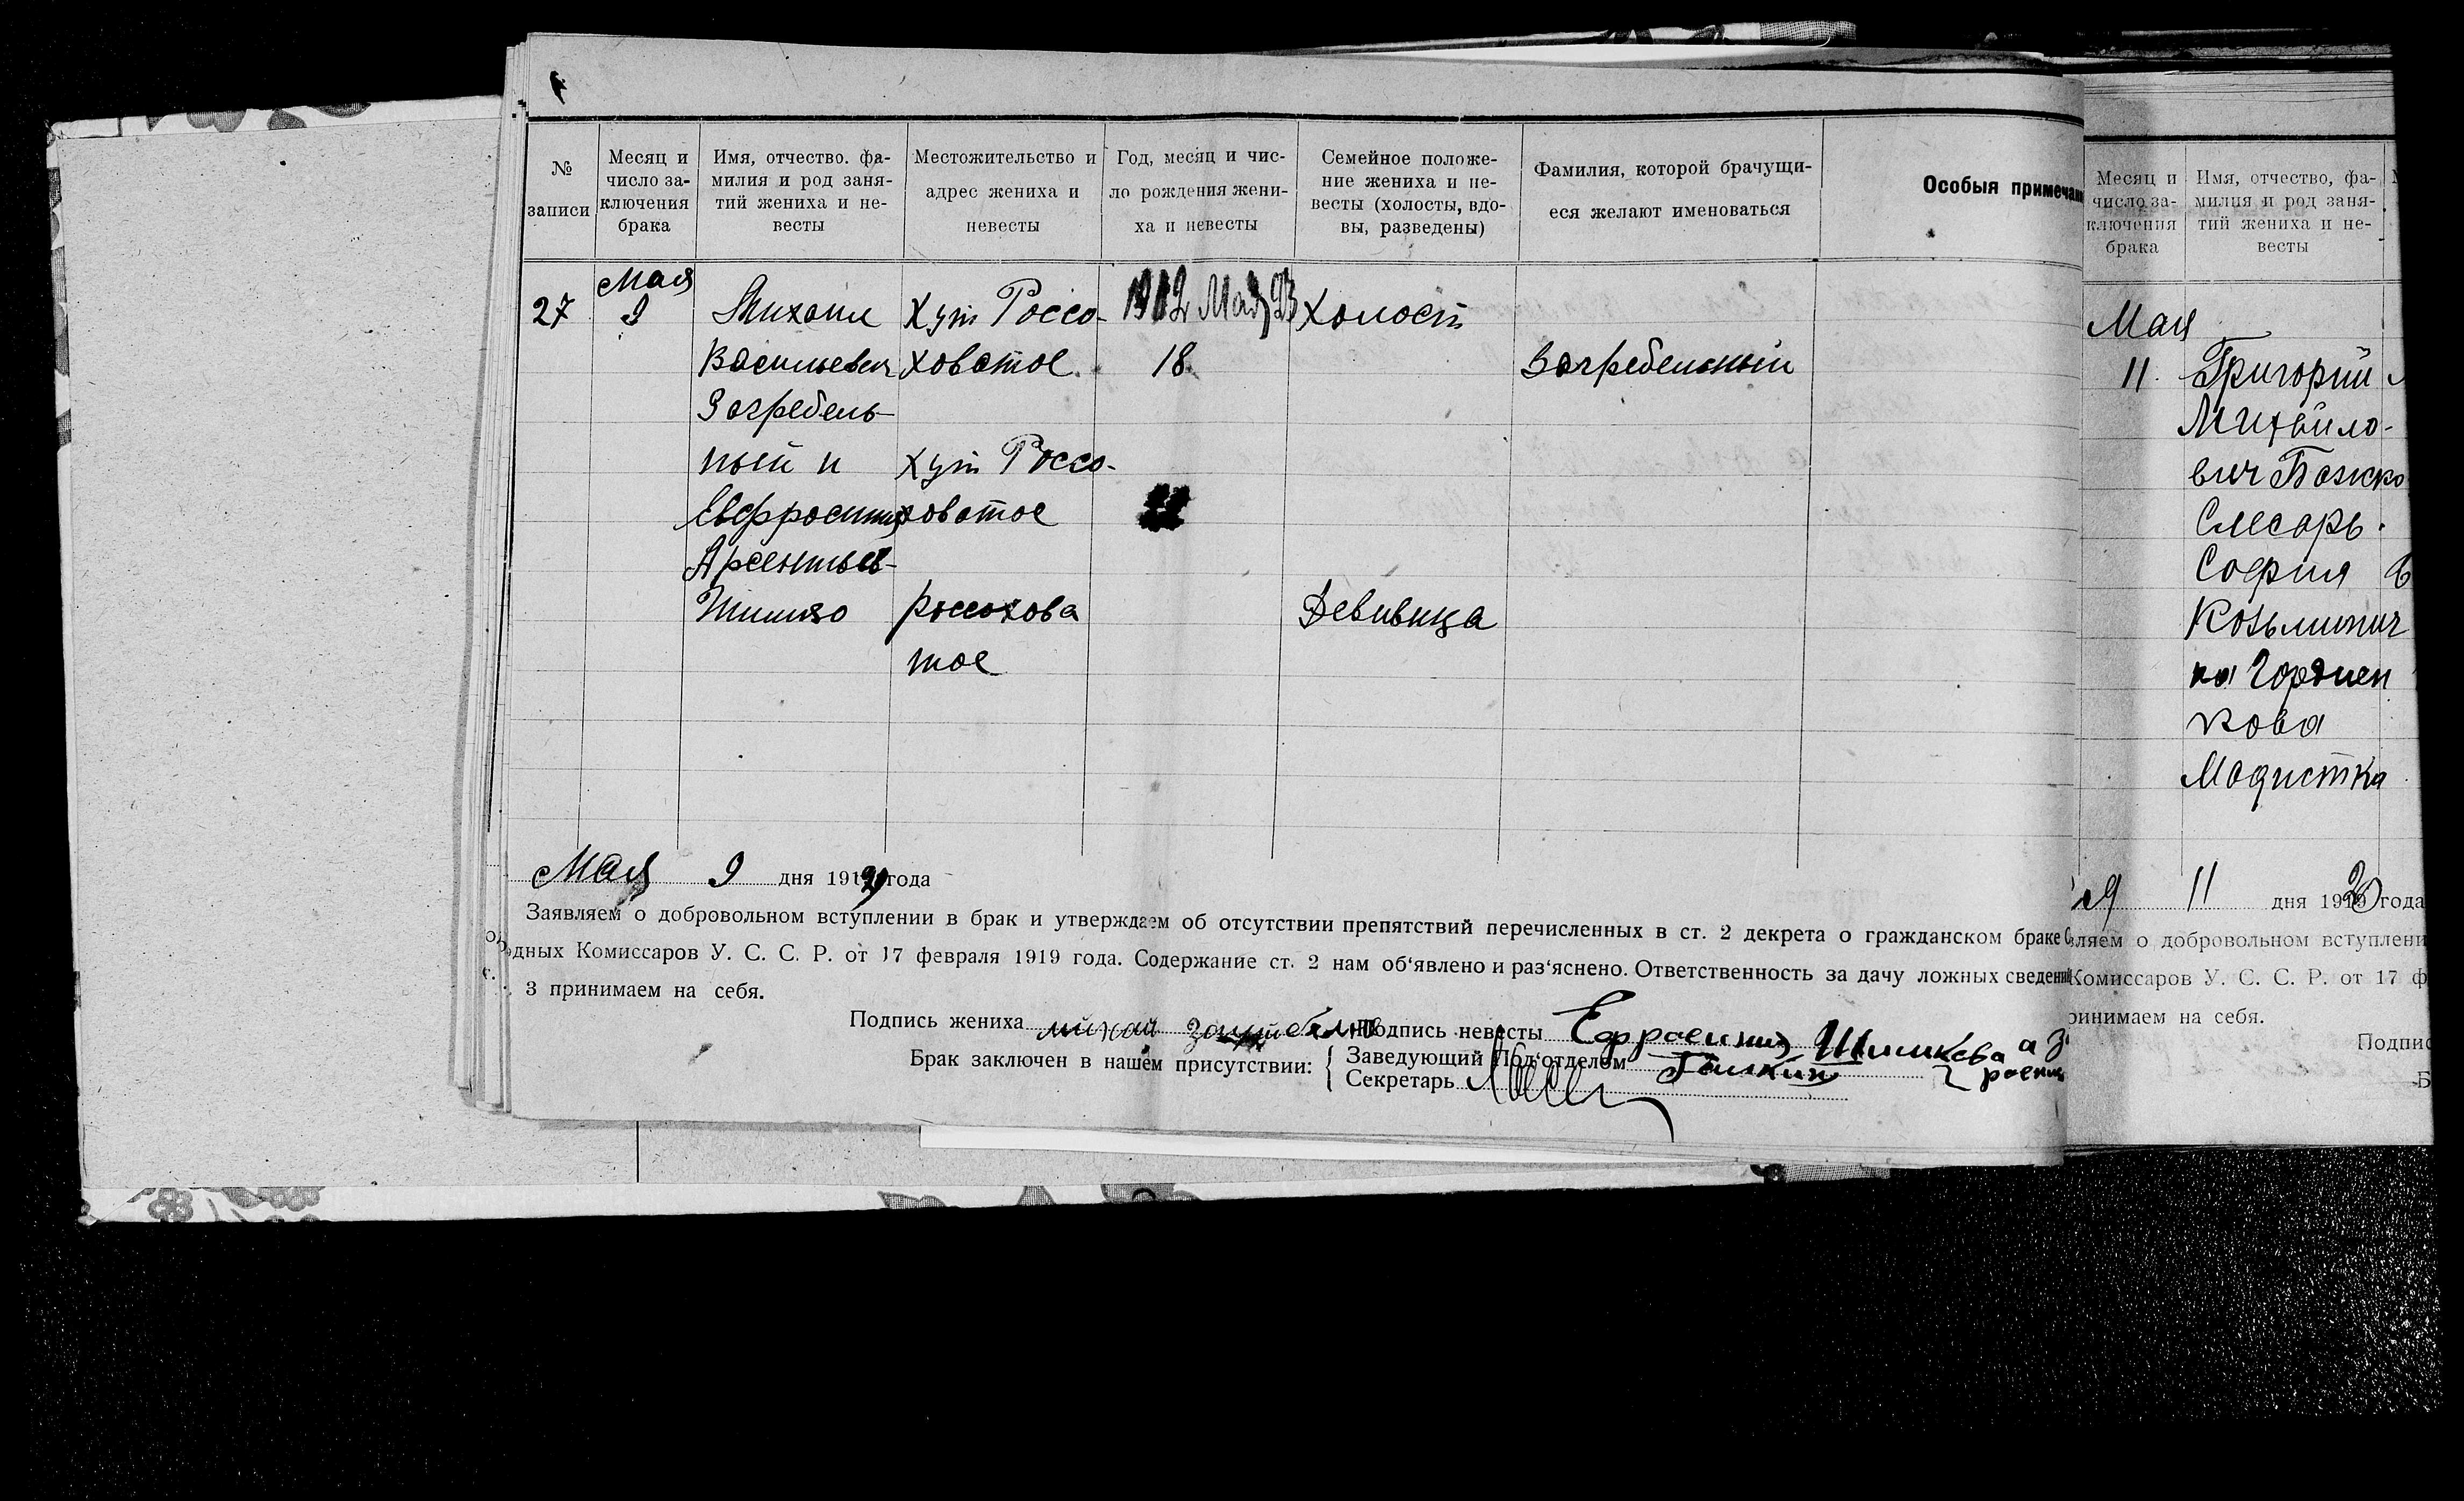 № записи
Месяц и число заключения брака
Имя, отчество. фамилия и род занятий жениха и невесты
Местожительство и адрес жениха и невесты
Год, месяц и число рождения жениха и невесты
Семейное положение жениха и невесты (холосты, вдовы, разведены)
Фамилия, которой брачущиеся желают именоваться
Особыя примечан
Мая
27 9 Михаил хут Россо- Мая 23 холост
Васильевич ховатое 18 Загребельный
Загребель-
ный и хут Россо-
Евфросиния ховатое
Арсентьев-
Шишко Россохова Девивица
тое
Мая 9 дня 19 года
Заявляем о добровольном вступлении в брак и утверждаем об отсутствии препятствий перечисленных в ст. 2 декрета о гражданском браке
одных Комиссаров У. С. С. Р. от 17 февраля 1919 года. Содержание ст. 2 нам об‘явлено и раз‘яснено. Ответственность за дачу ложных сведени
3 принимаем на себя.
Подпись жениха Подпись невесты
Брак заключен в нашем присутствии: { Заведующий Под‘отделом Галкин
Секретарь
Месяц и число заключения брака
Имя, отчество, фамилия и род занятий жениха и невесты
Мая
11. Григорий
Михайло-
вич Божко
Слесарь.
София
Козьминич
на Гордиен
кова
Модистка
11 дня 19 года
вляем о добровольном вступлени
Комиссаров У. С. С. Р. от 17 ф
ринимаем на себя.
Подпис
Б